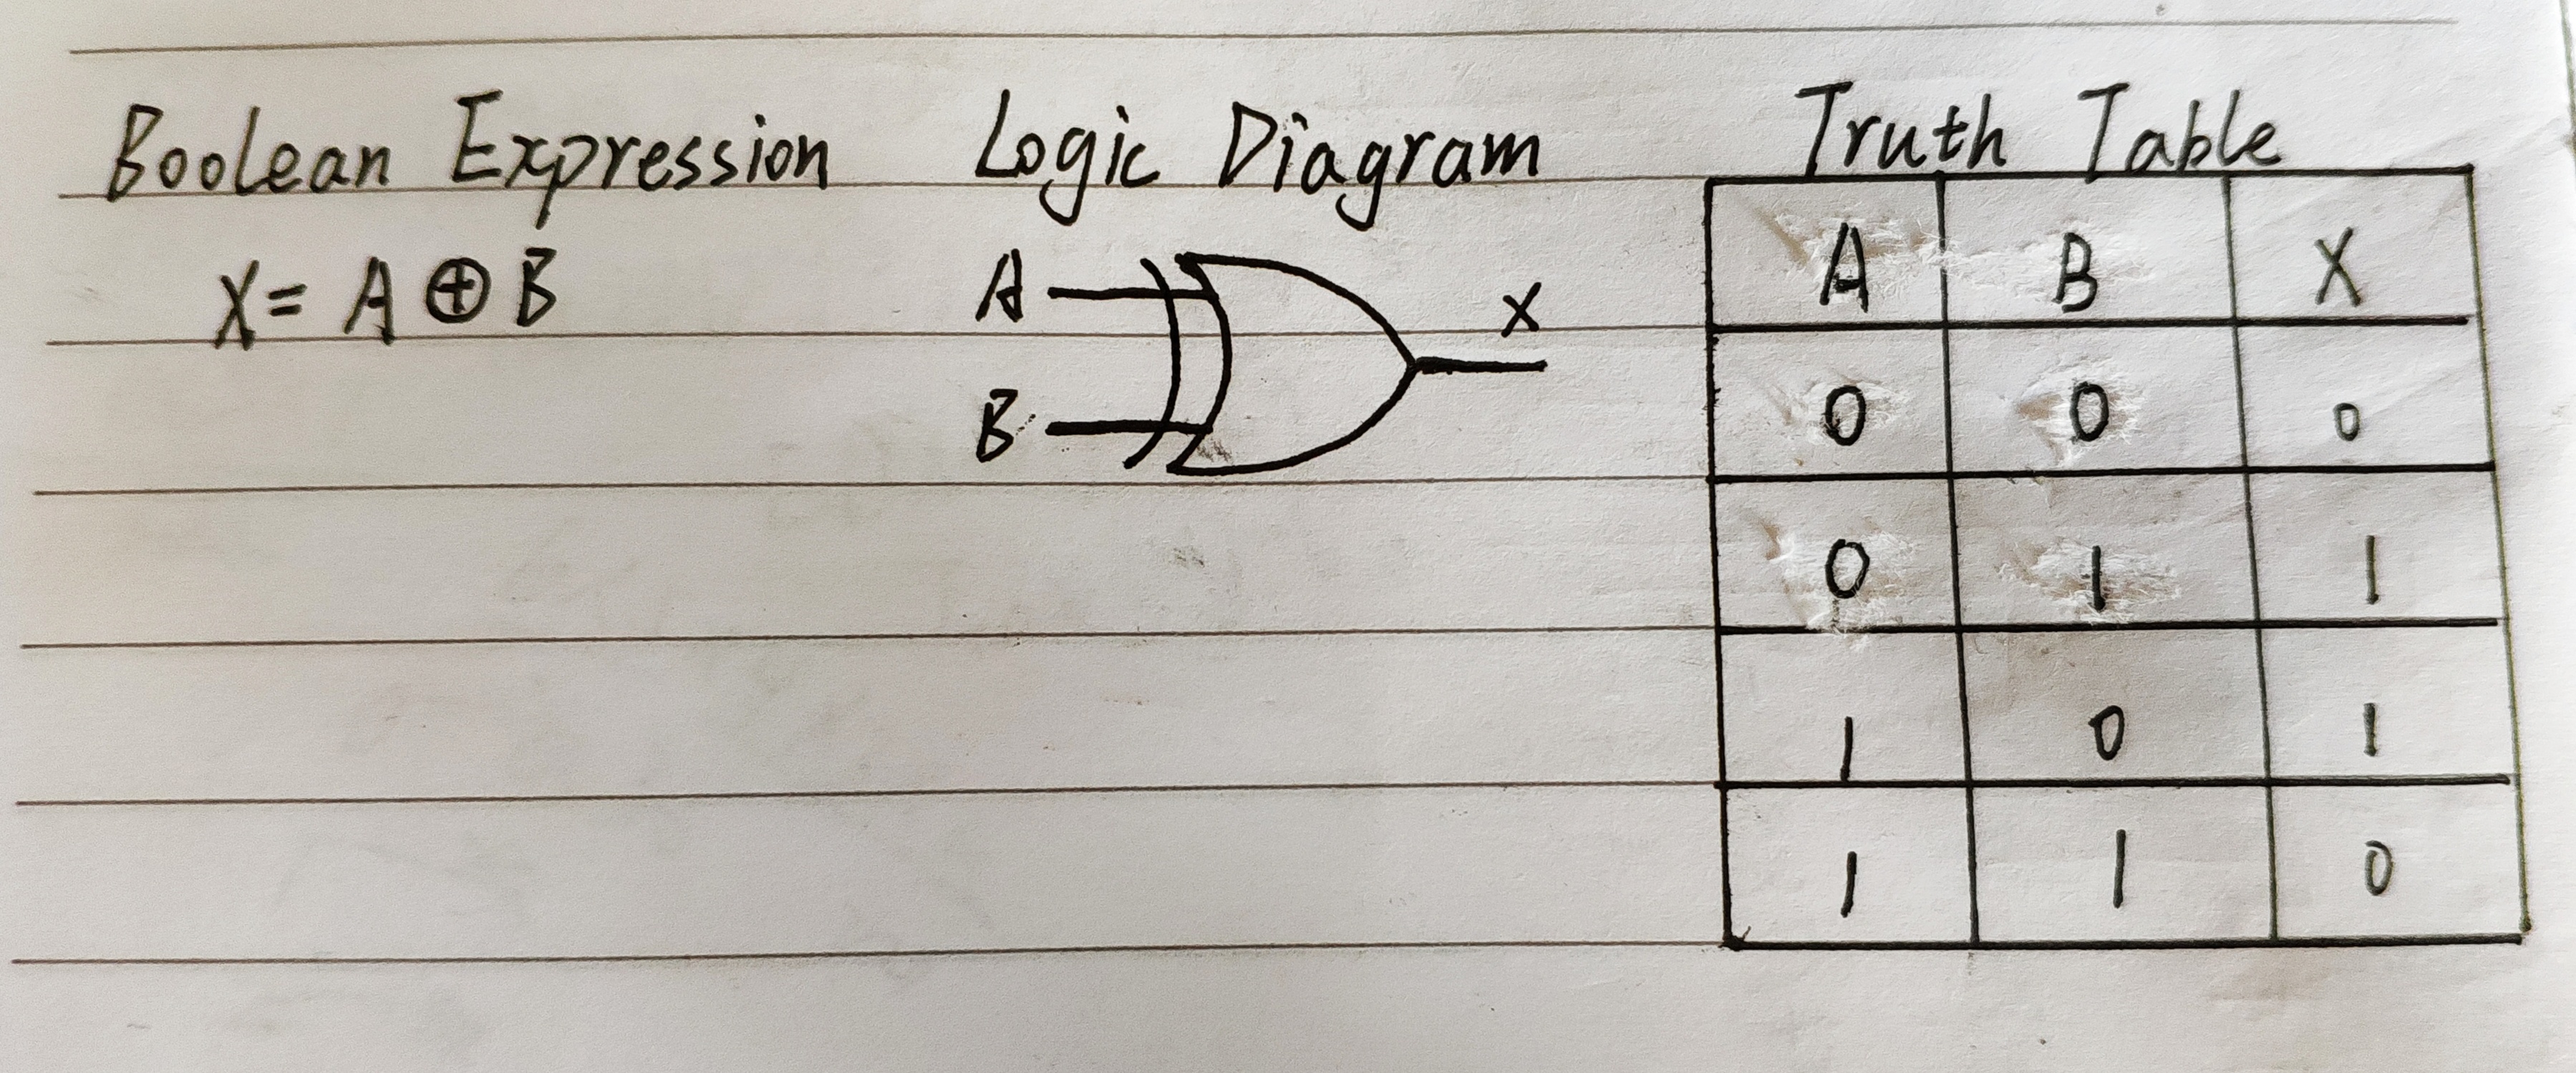 Boolean Expression
X= A ⊕ B
Logic Diagram
A
B
X
Truth Table
A B X
0 0 0
0 1 1
1 0 1
1 1 0